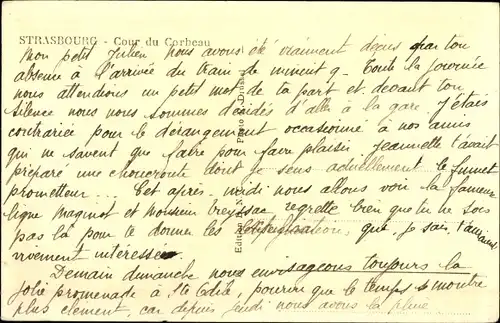 STRASBOURG - Cour du Corbeau
Mon petit Julien, nous avons été vraiment déçus par ton
absence à l'arrivée du train de minuit 9. Toute la journée
nous attendions un petit mot de ta part et devant ton
silence nous nous sommes décidés d'aller à la gare. J'étais
contrariée pour le dérangement occasionné à nos amis
qui ne savent que faire pour faire plaisir. Jeannette t'avait
préparé une choucroute dont je sens actuellement le fumet
prometteur... Cet après-midi nous allons voir la fameuse
ligne Maginot et Monsieur regrette bien que tu ne sois
pas là pour te donner les que, je sais, t'auraient
vivement intéressé.
Demain dimanche nous envisageons toujours la
jolie promenade à Ste Odile, pourvu que le temps se montre
plus clément, car depuis jeudi nous avons la pluie.